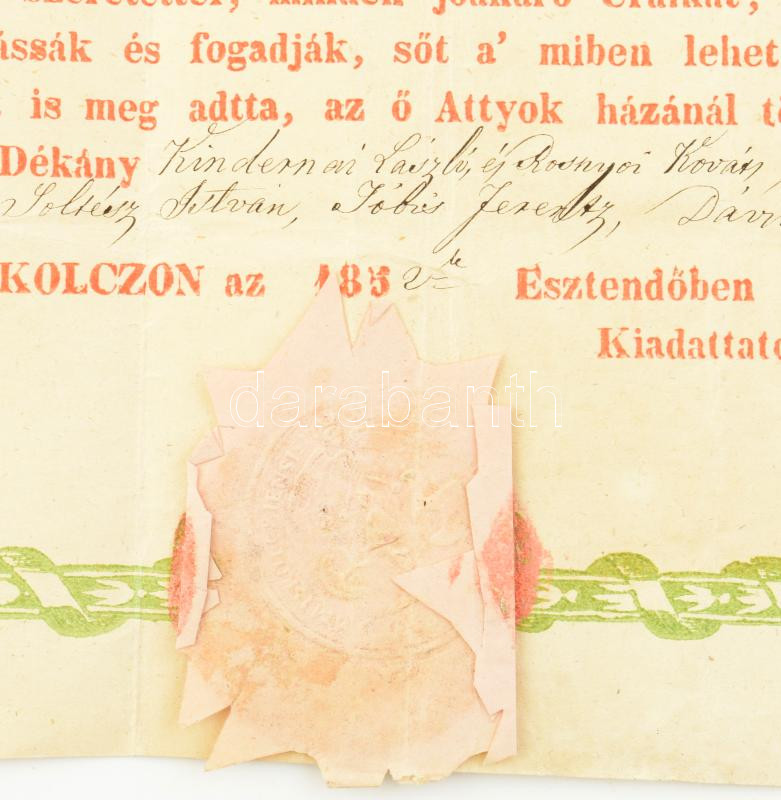 szeretettel, minden jóakaró Uraikat,
ássák és fogadják, sőt a' miben lehet
is meg adtta, az ő Attyok házánál
Dékány Kindernai László, és Rosnyói Kováts
Soltész István, Tóbis Ferentz, Dávi
KOLCZON az 1852 de Esztendőben
Kiadattato
darabanth